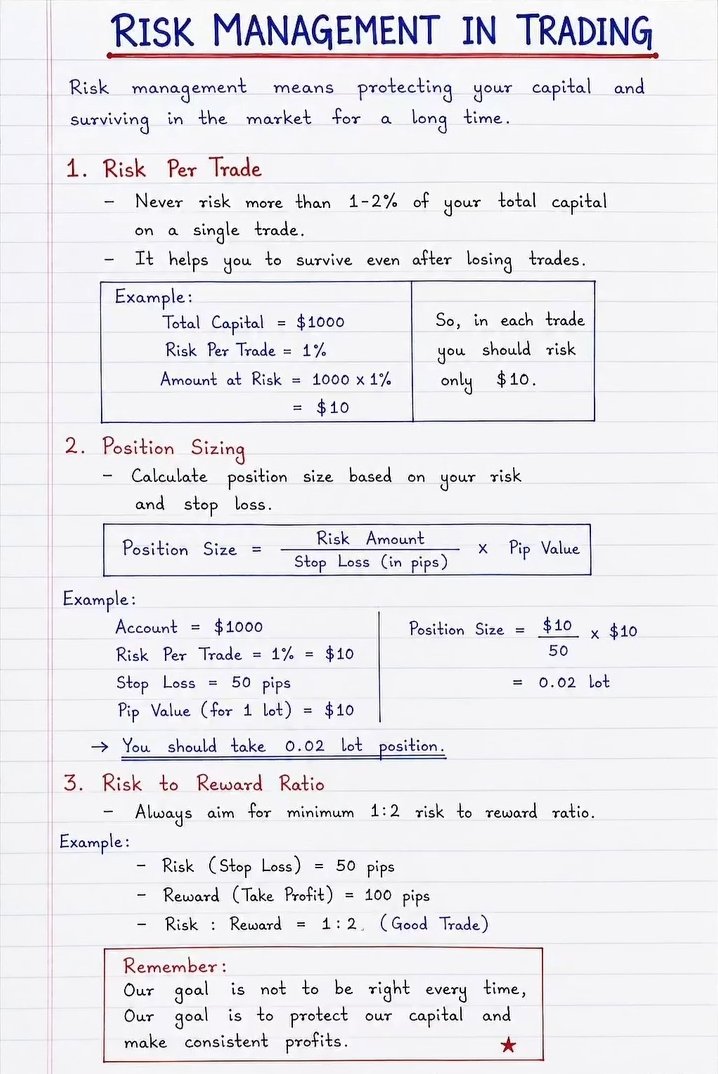 RISK MANAGEMENT IN TRADING
Risk management means protecting your capital and
surviving in the market for a long time.
1. Risk Per Trade
- Never risk more than 1-2% of your total capital
on a single trade.
- It helps you to survive even after losing trades.
Example:
Total Capital = $1000
Risk Per Trade = 1%
Amount at Risk = 1000 x 1%
= $10
So, in each trade
you should risk
only $10.
2. Position Sizing
- Calculate position size based on your risk
and stop loss.
Position Size = Risk Amount / Stop Loss (in pips) x Pip Value
Example:
Account = $1000
Risk Per Trade = 1% = $10
Stop Loss = 50 pips
Pip Value (for 1 lot) = $10
Position Size = $10 / 50 x $10
= 0.02 lot
→ You should take 0.02 lot position.
3. Risk to Reward Ratio
- Always aim for minimum 1:2 risk to reward ratio.
Example:
- Risk (Stop Loss) = 50 pips
- Reward (Take Profit) = 100 pips
- Risk : Reward = 1:2. (Good Trade)
Remember:
Our goal is not to be right every time,
Our goal is to protect our capital and
make consistent profits. ★